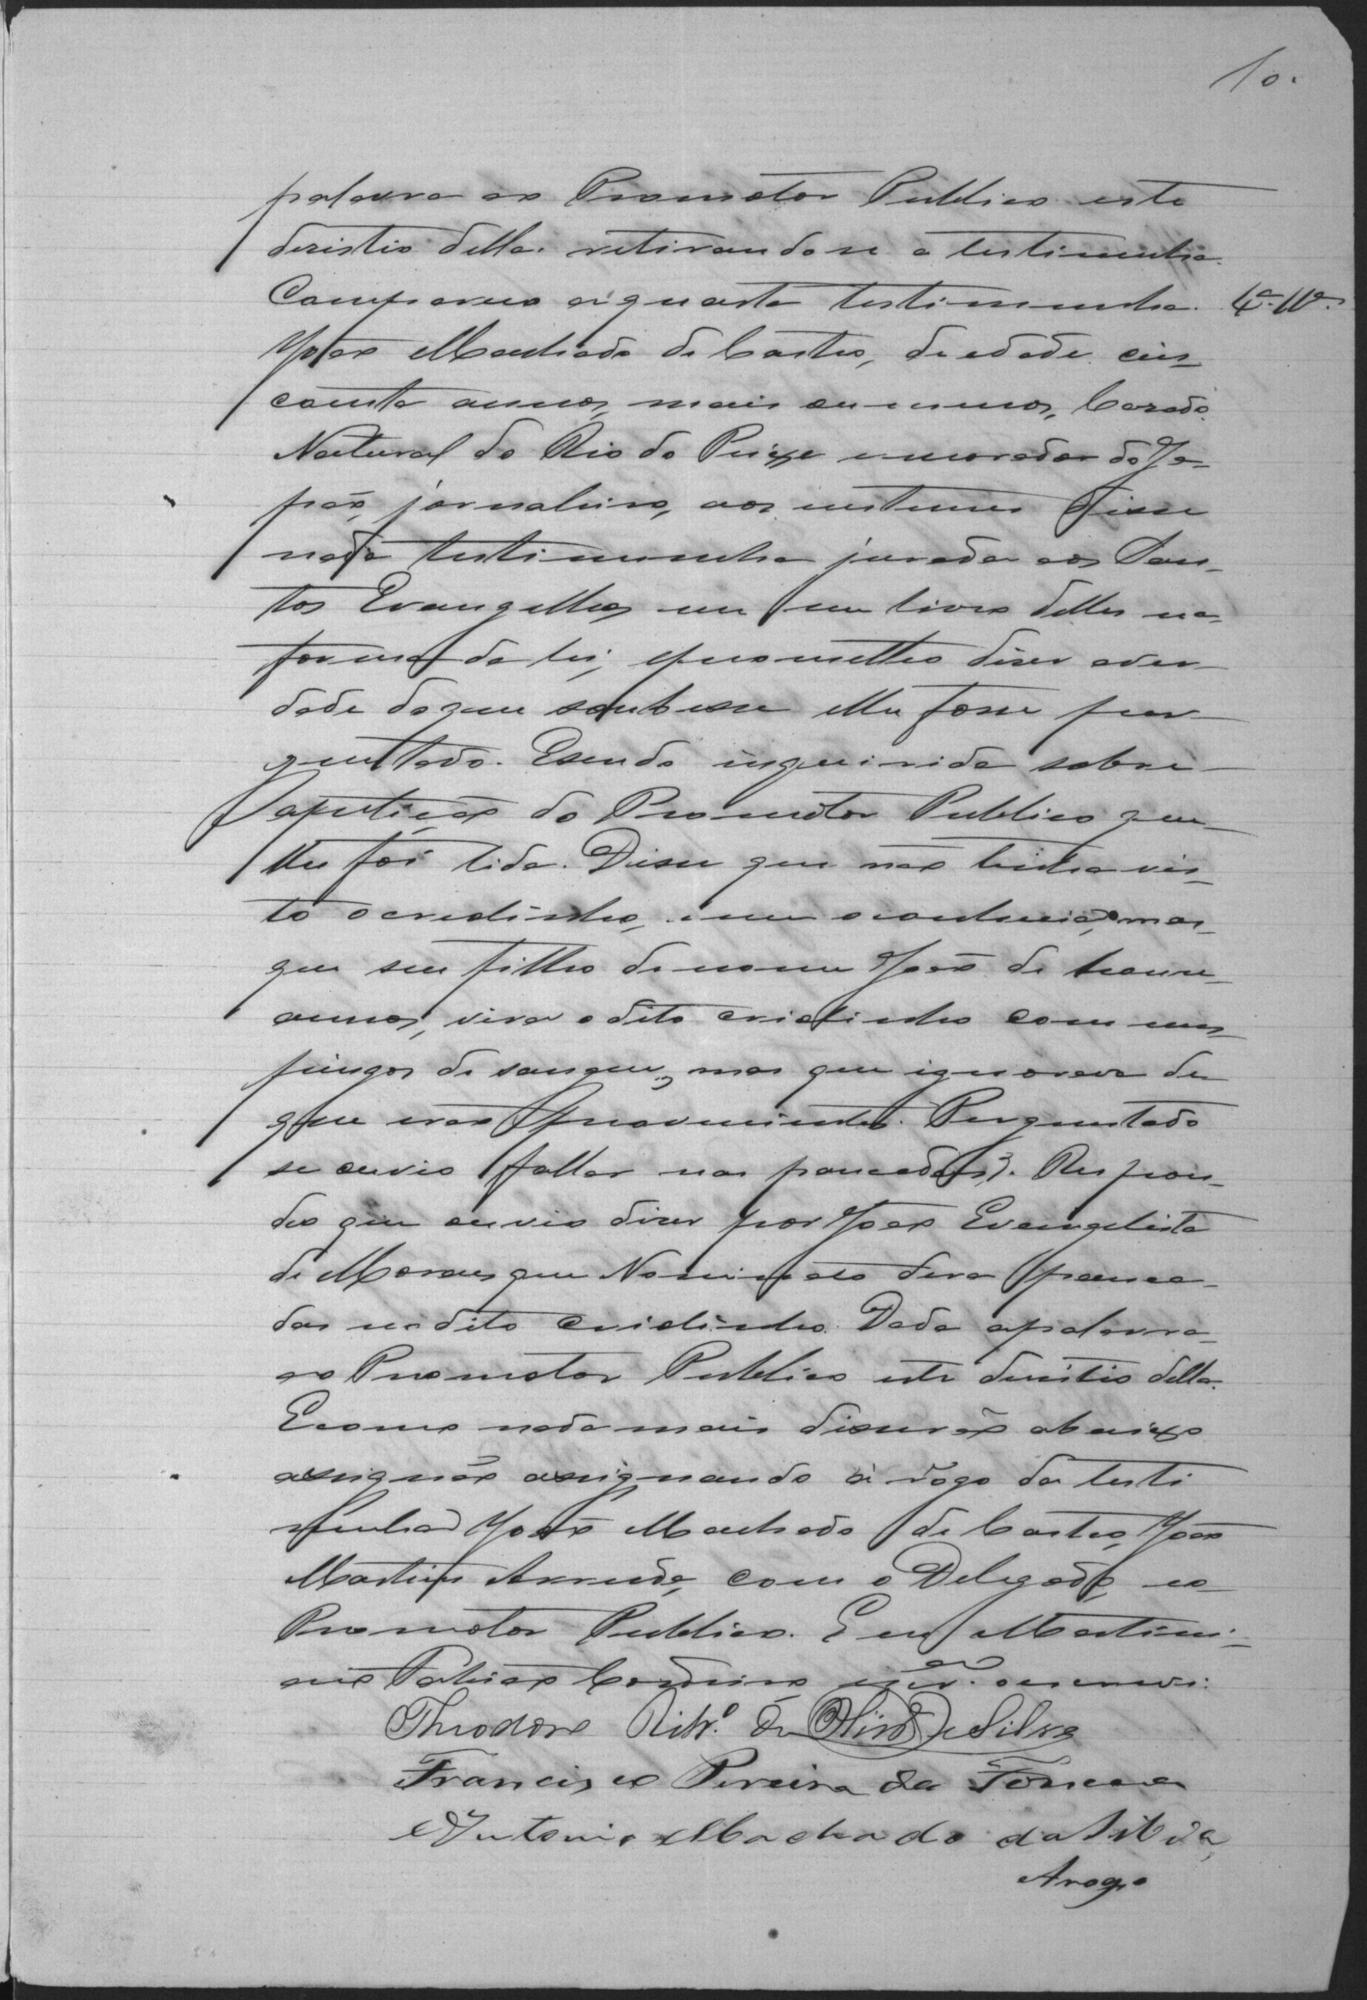 10.
palavra ao Promotor Publico este
desistio della. retirando se a testimunha.
Compareceo a quarta testimunha. 4ª. Tª.
João Machado de Castro, de edade cin-
coenta annos, mais ou menos, Casado.
Natural do Rio do Peixe e morador do Ja-
pão, jornaleiro, aos custumes disse
nada testimunha jurada aos San-
tos Evangelhos em um livro delles na
forma da lei, e prometteo diser a ver-
dade do que soubesse e lhe fosse per-
guntado. E sendo inquirida sobre
a petição do Promotor Publico que
lhe foi lida. Disse que não tinha vis-
to o creolinho, nem o conhecia, mas
que seu filho de nome João de
annos, vira o dito criolinho com uns
pingos de sangue, mas que ignorava de
que erão provenientes. Perguntado
se ouvio fallar nas pancadas? Respon-
deo que ouvio diser por João Evangelista
de Moraes que dera panca-
das no dito criolinho. Dada a palavra
ao Promotor Publico este desistio della.
E como nada mais disserão abaixo
assignão assignando á rogo da testi
munha João Machado de Castro, João
Martins Arruda, com o Delegado, e o
Promotor Publico. E eu Martini-
ano Cordeiro escrevi.
Theodoro Ribº. de Olivª e Silva
Francisco Pereira da Fonseca
Antonio Machado da Silva,
Arogo